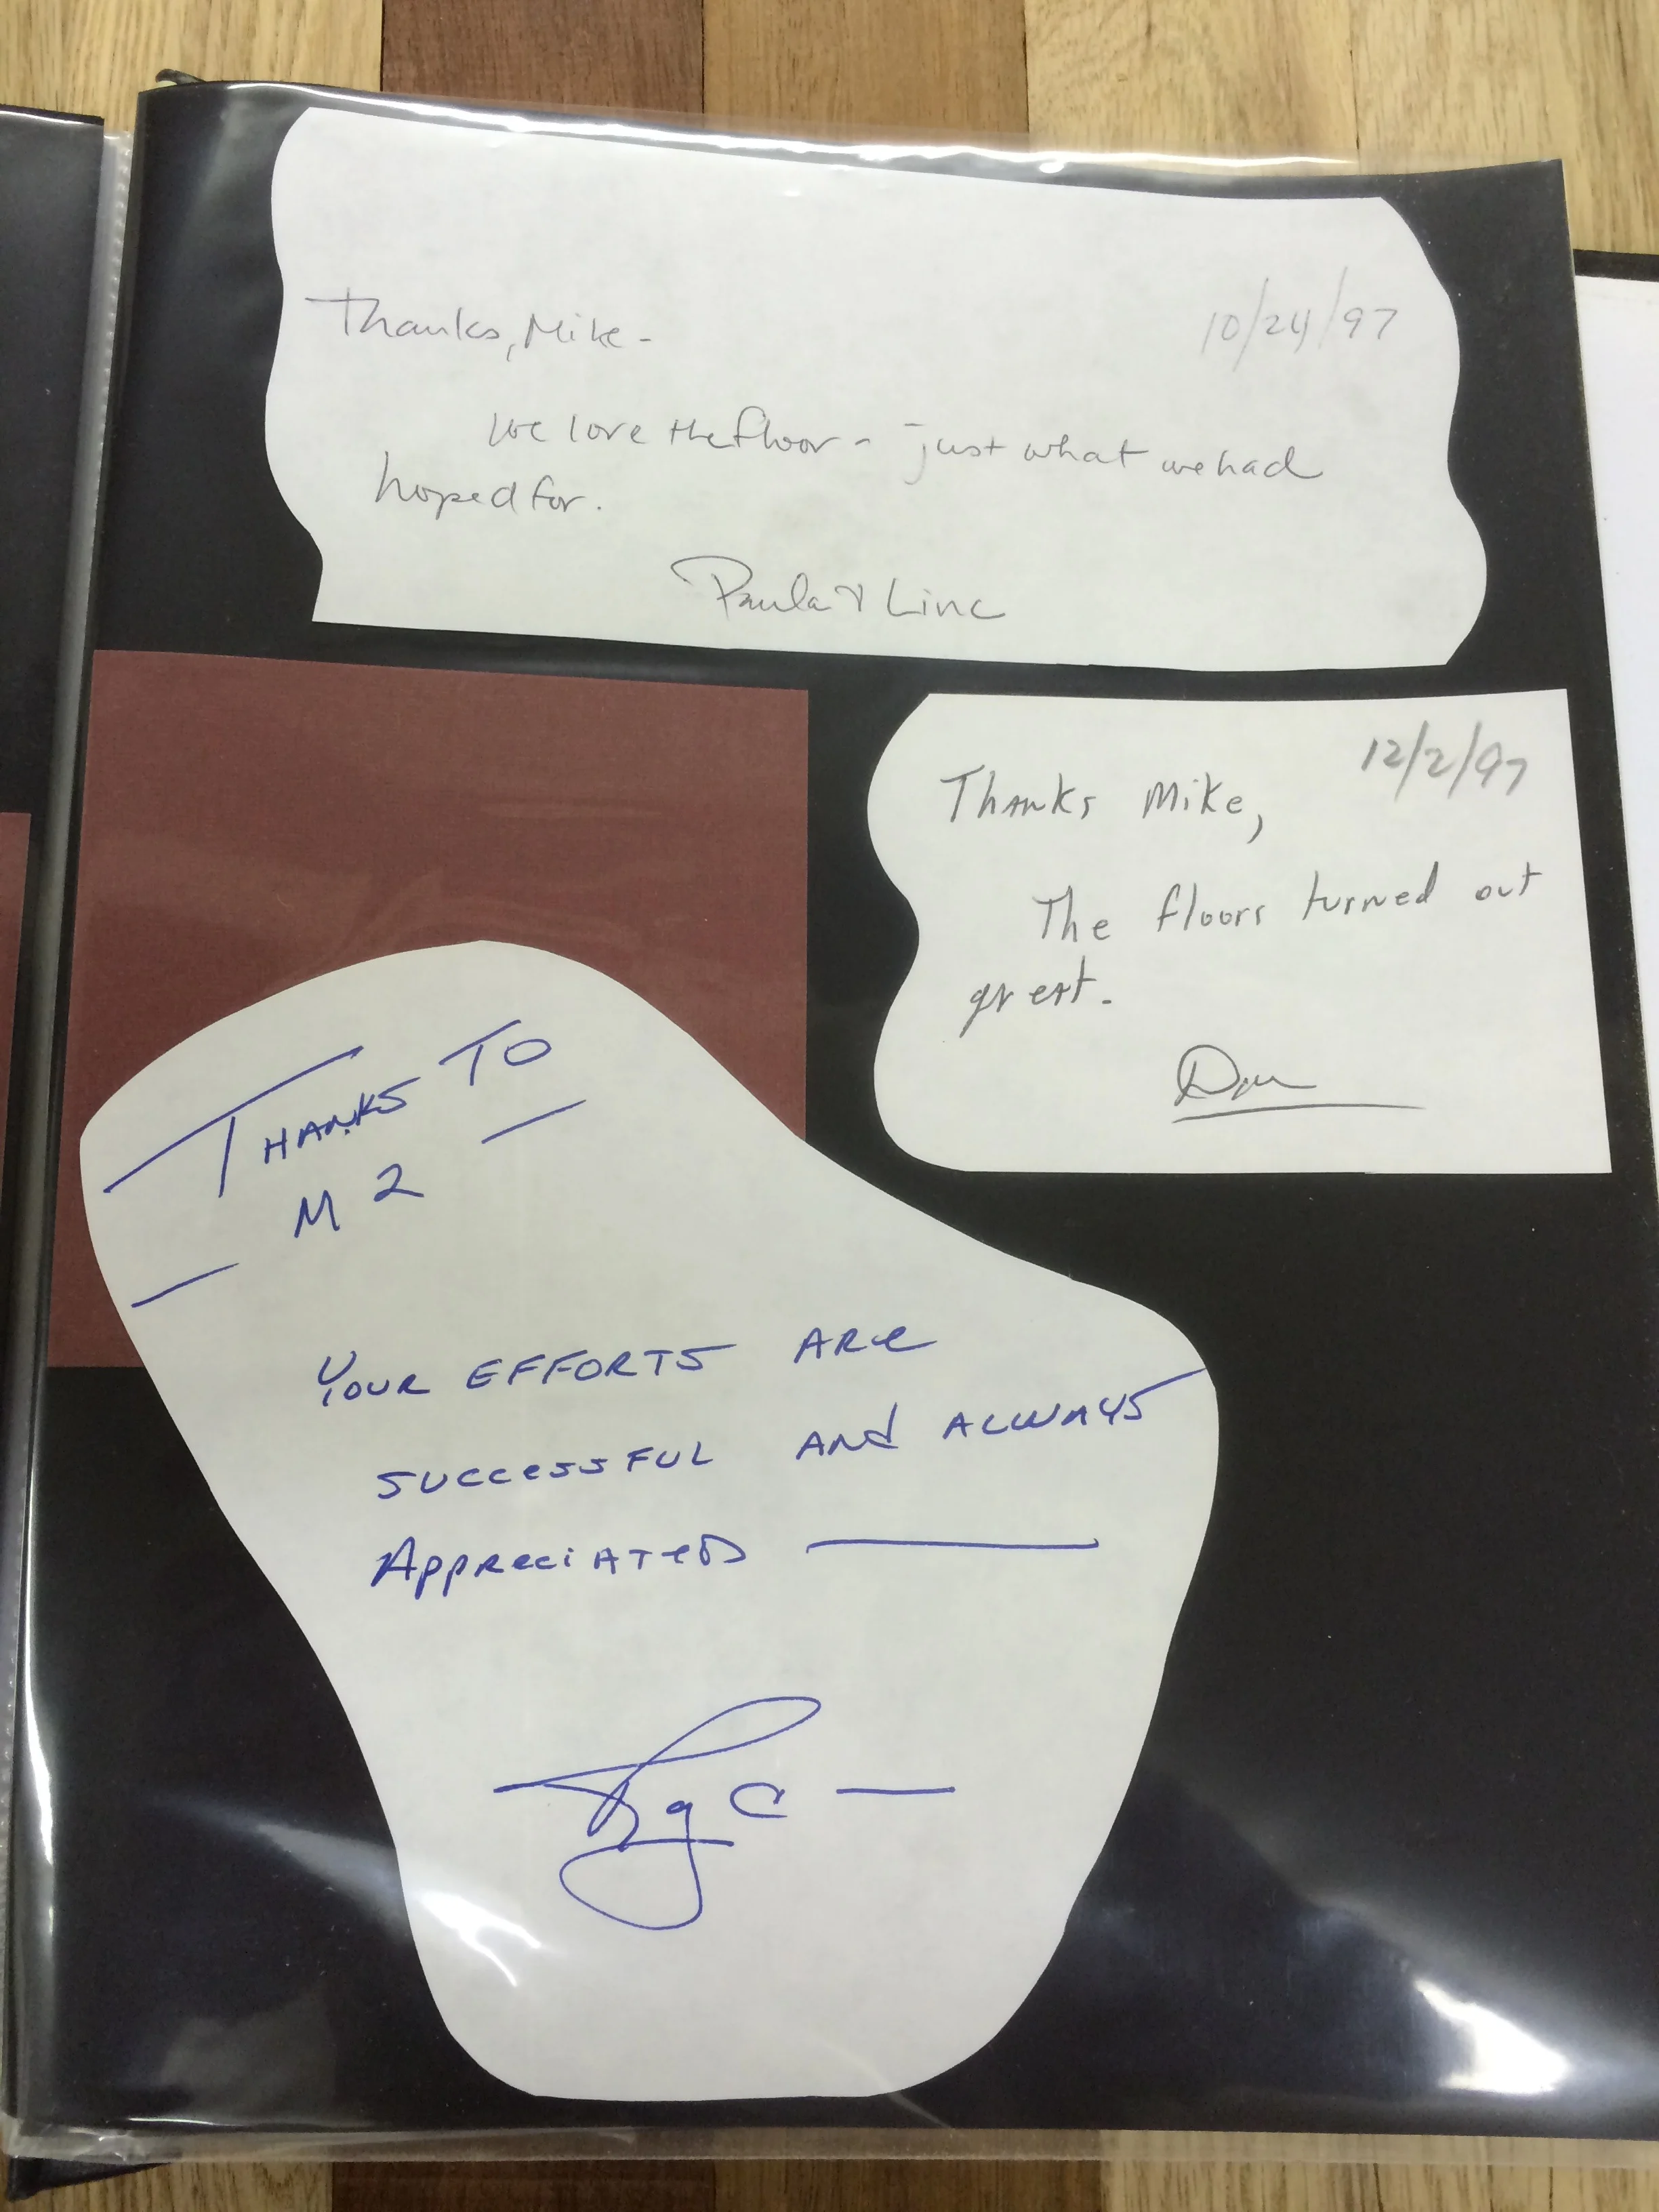 Thanks, Mike - 10/24/97
We love the floor - just what we had
hoped for.
Paula & Linc
Thanks Mike, 12/2/97
The floors turned out
great.
THANKS TO
M 2
YOUR EFFORTS ARE
SUCCESSFUL AND ALWAYS
APPRECIATED —